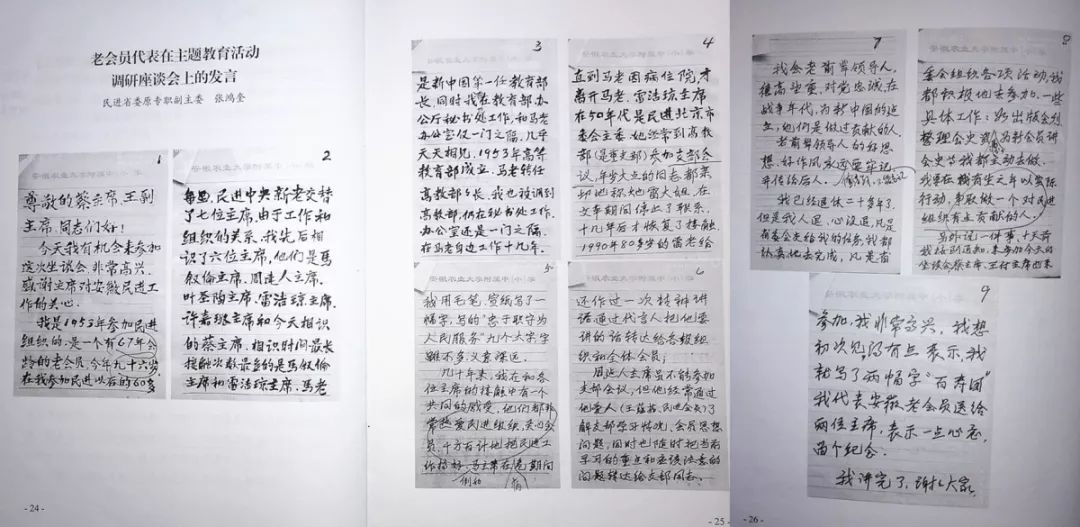 老会员代表在主题教育活动
调研座谈会上的发言
民进省委原专职副主委 张鸿奎
1
尊敬的蔡主席,王副
主席,同志们好!
今天我有机会来参加
这次坐谈会,非常高兴,
感谢主席对安徽民进工
作的关心。
我是1953年参加民进
组织的,是一个有67年会
龄的老会员,今年九十六岁,
在我参加民进以后的60多
2
民进中央新老交替
了七位主席,由于工作和
组织的关系,我先后相
识了六位主席,他们是马
叙伦主席,周建人主席,
叶圣陶主席,雷洁琼主席,
许嘉璐主席和今天相识
的蔡主席。相识时间最长
接触次数最多的是马叙伦
主席和雷洁琼主席,马老
- 24 -
3
是新中国第一任教育部
长,同时我在教育部办
公厅秘书处工作,和马老
办公室仅一门之隔,几乎
天天相见,1953年高等
教育部成立,马老转任
高教部部长,我也被调到
高教部,仍在秘书处工作,
办公室还是一门之隔。
在马老身边工作十几年,
4
直到马老因病住院,才
离开马老。雷洁琼主席
在50年代是民进北京市
委会主委,她还常到高教
部(是重支部)参加支部会
议,年岁大点的同志都亲
切地称她雷大姐,在
文革期间停止了联系,
十几年后才恢复了接触,
1990年80多岁的雷老给
5
我用毛笔,宣纸写了一
幅字,写的"忠于职守为
人民服务"九个大字,字
虽不多,义意深远。
几十年来,我在和各
位主席的接触中有一个
共同的感觉,他们都非
常热爱民进组织,关心会
员,千方百计地把民进工
作搞好,马主席在 期间
6
还作过一次精神讲
话通过代言人把他要
讲的话转达给各级组
织和全体会员;
周建人主席虽不能参加
支部会议,但他经常通过
他爱人(王蕴如,民进会员)了
解支部学习情况,会员思想
问题,同时也随时把当前
学习的重点和应该注意的
问题转达给支部同志。
- 25 -
7
我会老前辈领导人,
德高望重,对党忠诚,在
战争年代,为新中国的建
立,他们是做过贡献的人。
老前辈领导人的好思
想、好作风永远要牢记,
并传给后人。
我已经退休二十多年了,
但是我人退,心没退,凡是
省委会交给我的任务,我都
认真地去完成,凡是省
8
委会组织各项活动,我
都积极地去参加。一些
具体工作:如出版会刊
整理会史资 为新会员讲
会史等我都主动去做。
我要在 有生之年以实际
行动,争取做一个对民进
组织有点贡献的人。
另外说一件事,十天前
我接到通知,来参加今天的
座谈会蔡主席,王副主席也来
9
参加,我非常高兴,我想
初次见面有点表示,我
就写了两幅字"百寿图"
我代表安徽老会员送给
两位主席,表示一点心意,
留个纪念。
我讲完了,谢谢大家
- 26 -